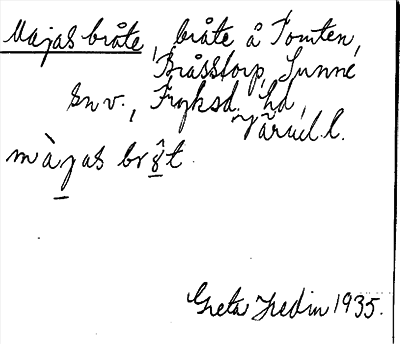 Majas bråte, bråte å Tomten,
Bråsstorp, Sunne
sn v., Fryksd. hd,
Värml. l.
màjas brôt
Greta Hedin 1935.